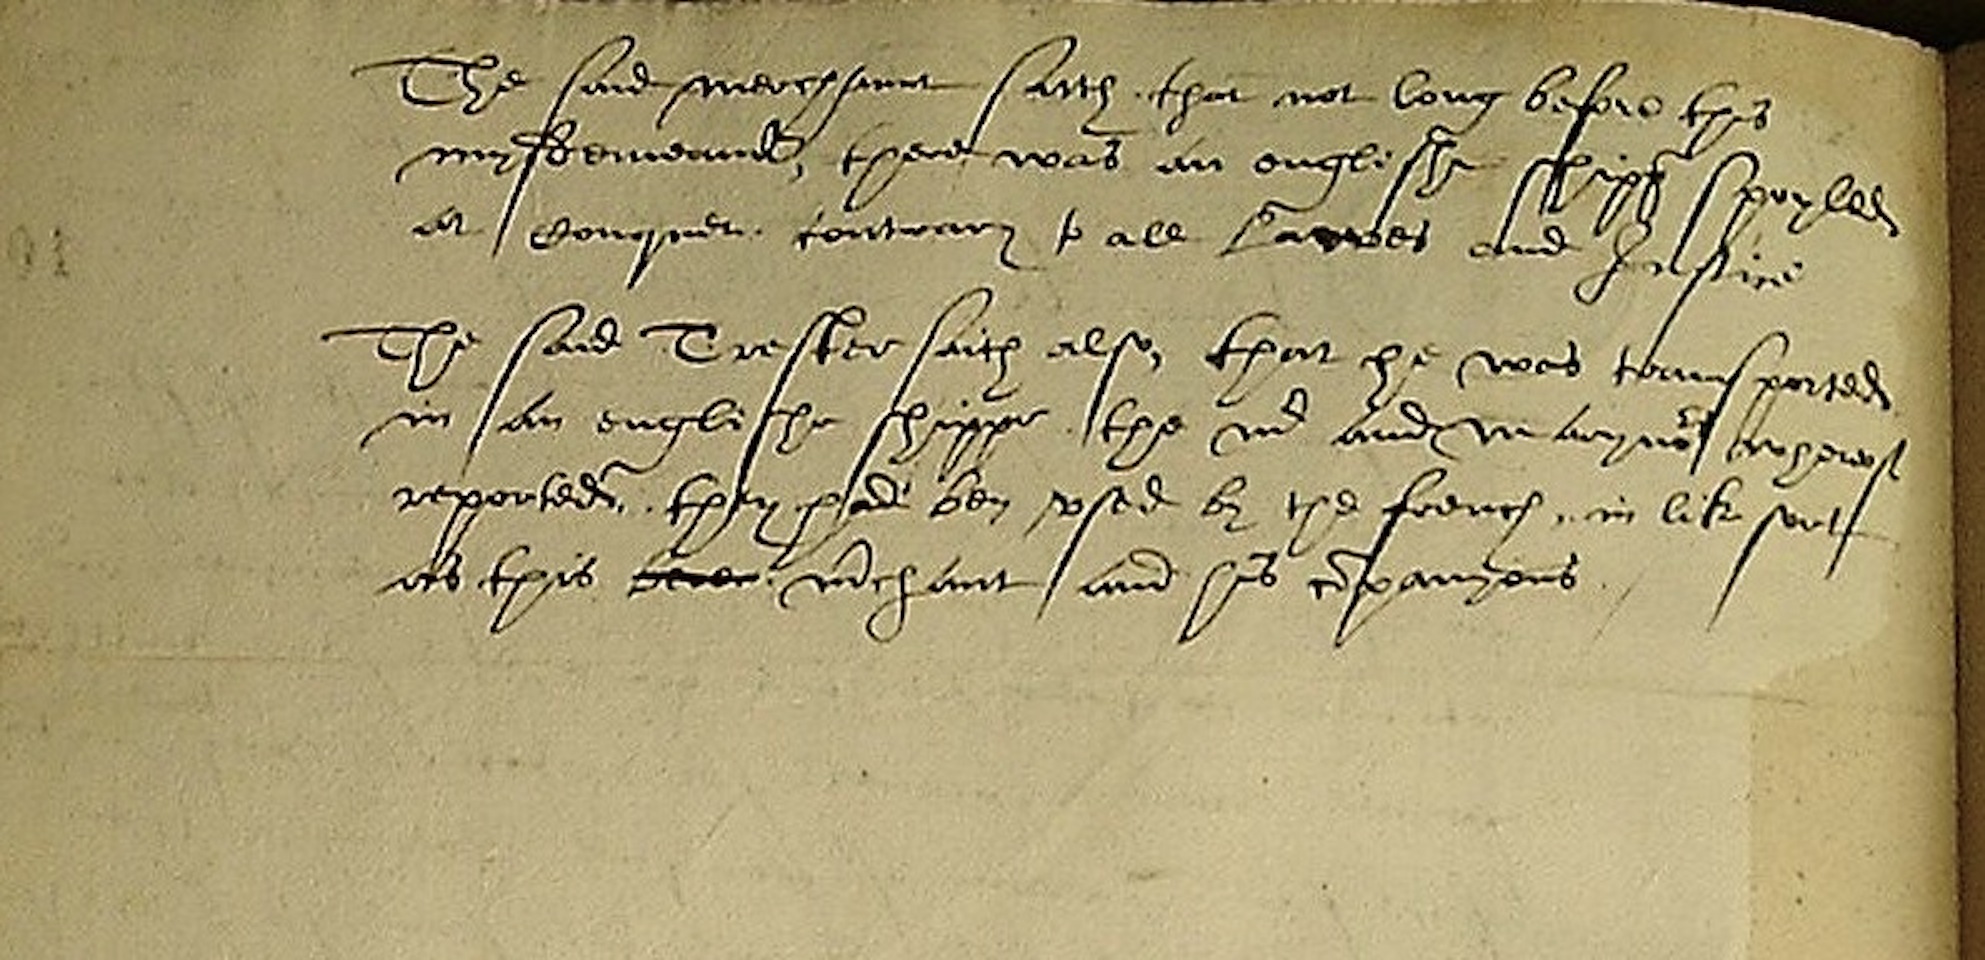 The said merchaunt saith that not long before this
mysdemeanor, there was an englishe shippe spoyled
at Conquet contrary to all Lawes and Justice
The said Trester saith also, that he was transported
in an englishe shippe the mr and maryners wherof
reported, they had ben vsed by the french, in lik sort
as this mrchant and his companyons